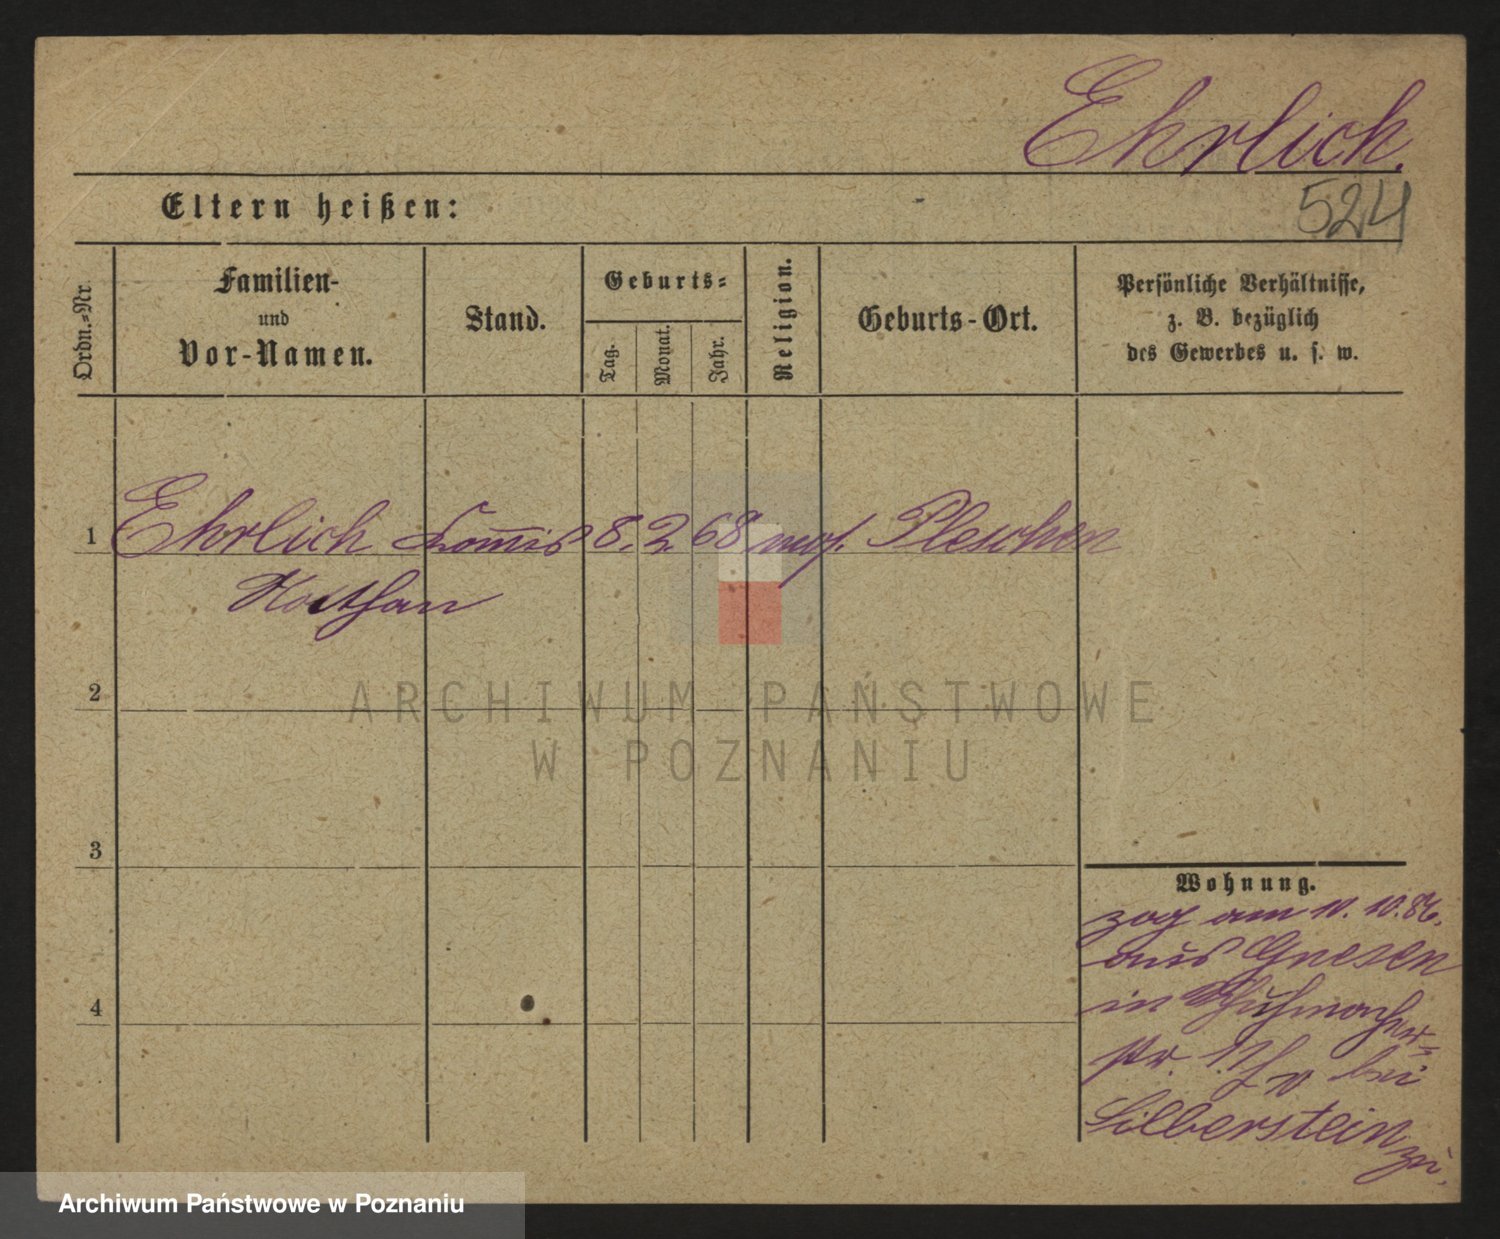 Ehrlich.
524
Eltern heißen:
Ordn.-Nr.
Familien-
und
Vor-Namen.
Stand.
Geburts-
Tag.
Monat.
Jahr.
Religion.
Geburts-Ort.
Persönliche Verhältnisse,
z. B. bezüglich
des Gewerbes u. s. w.
1 Ehrlich Komis 8. 2. 68 mos. Pleschen
Nathan
2
ARCHIWUM PAŃSTWOWE
W POZNANIU
3
4
Wohnung.
zog am 10.86.
aus Gnesen
in Schuhmacher-
str. bei
Silberstein
zu.
Archiwum Państwowe w Poznaniu